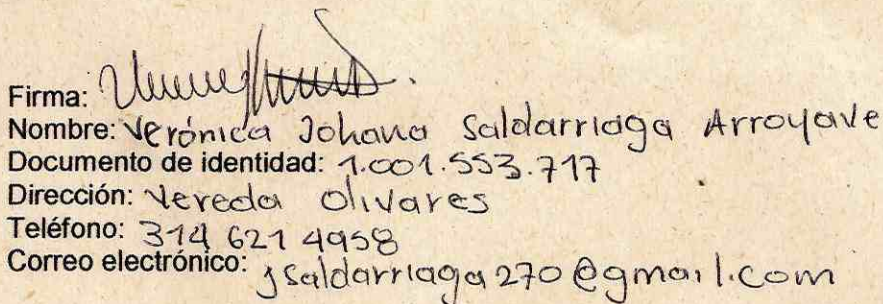 Firma:
Nombre: Verónica Johana Saldarriaga Arroyave
Documento de identidad: 1.001.553.717
Dirección: Vereda Olivares
Teléfono: 314 621 4958
Correo electrónico: jsaldarriaga270@gmail.com